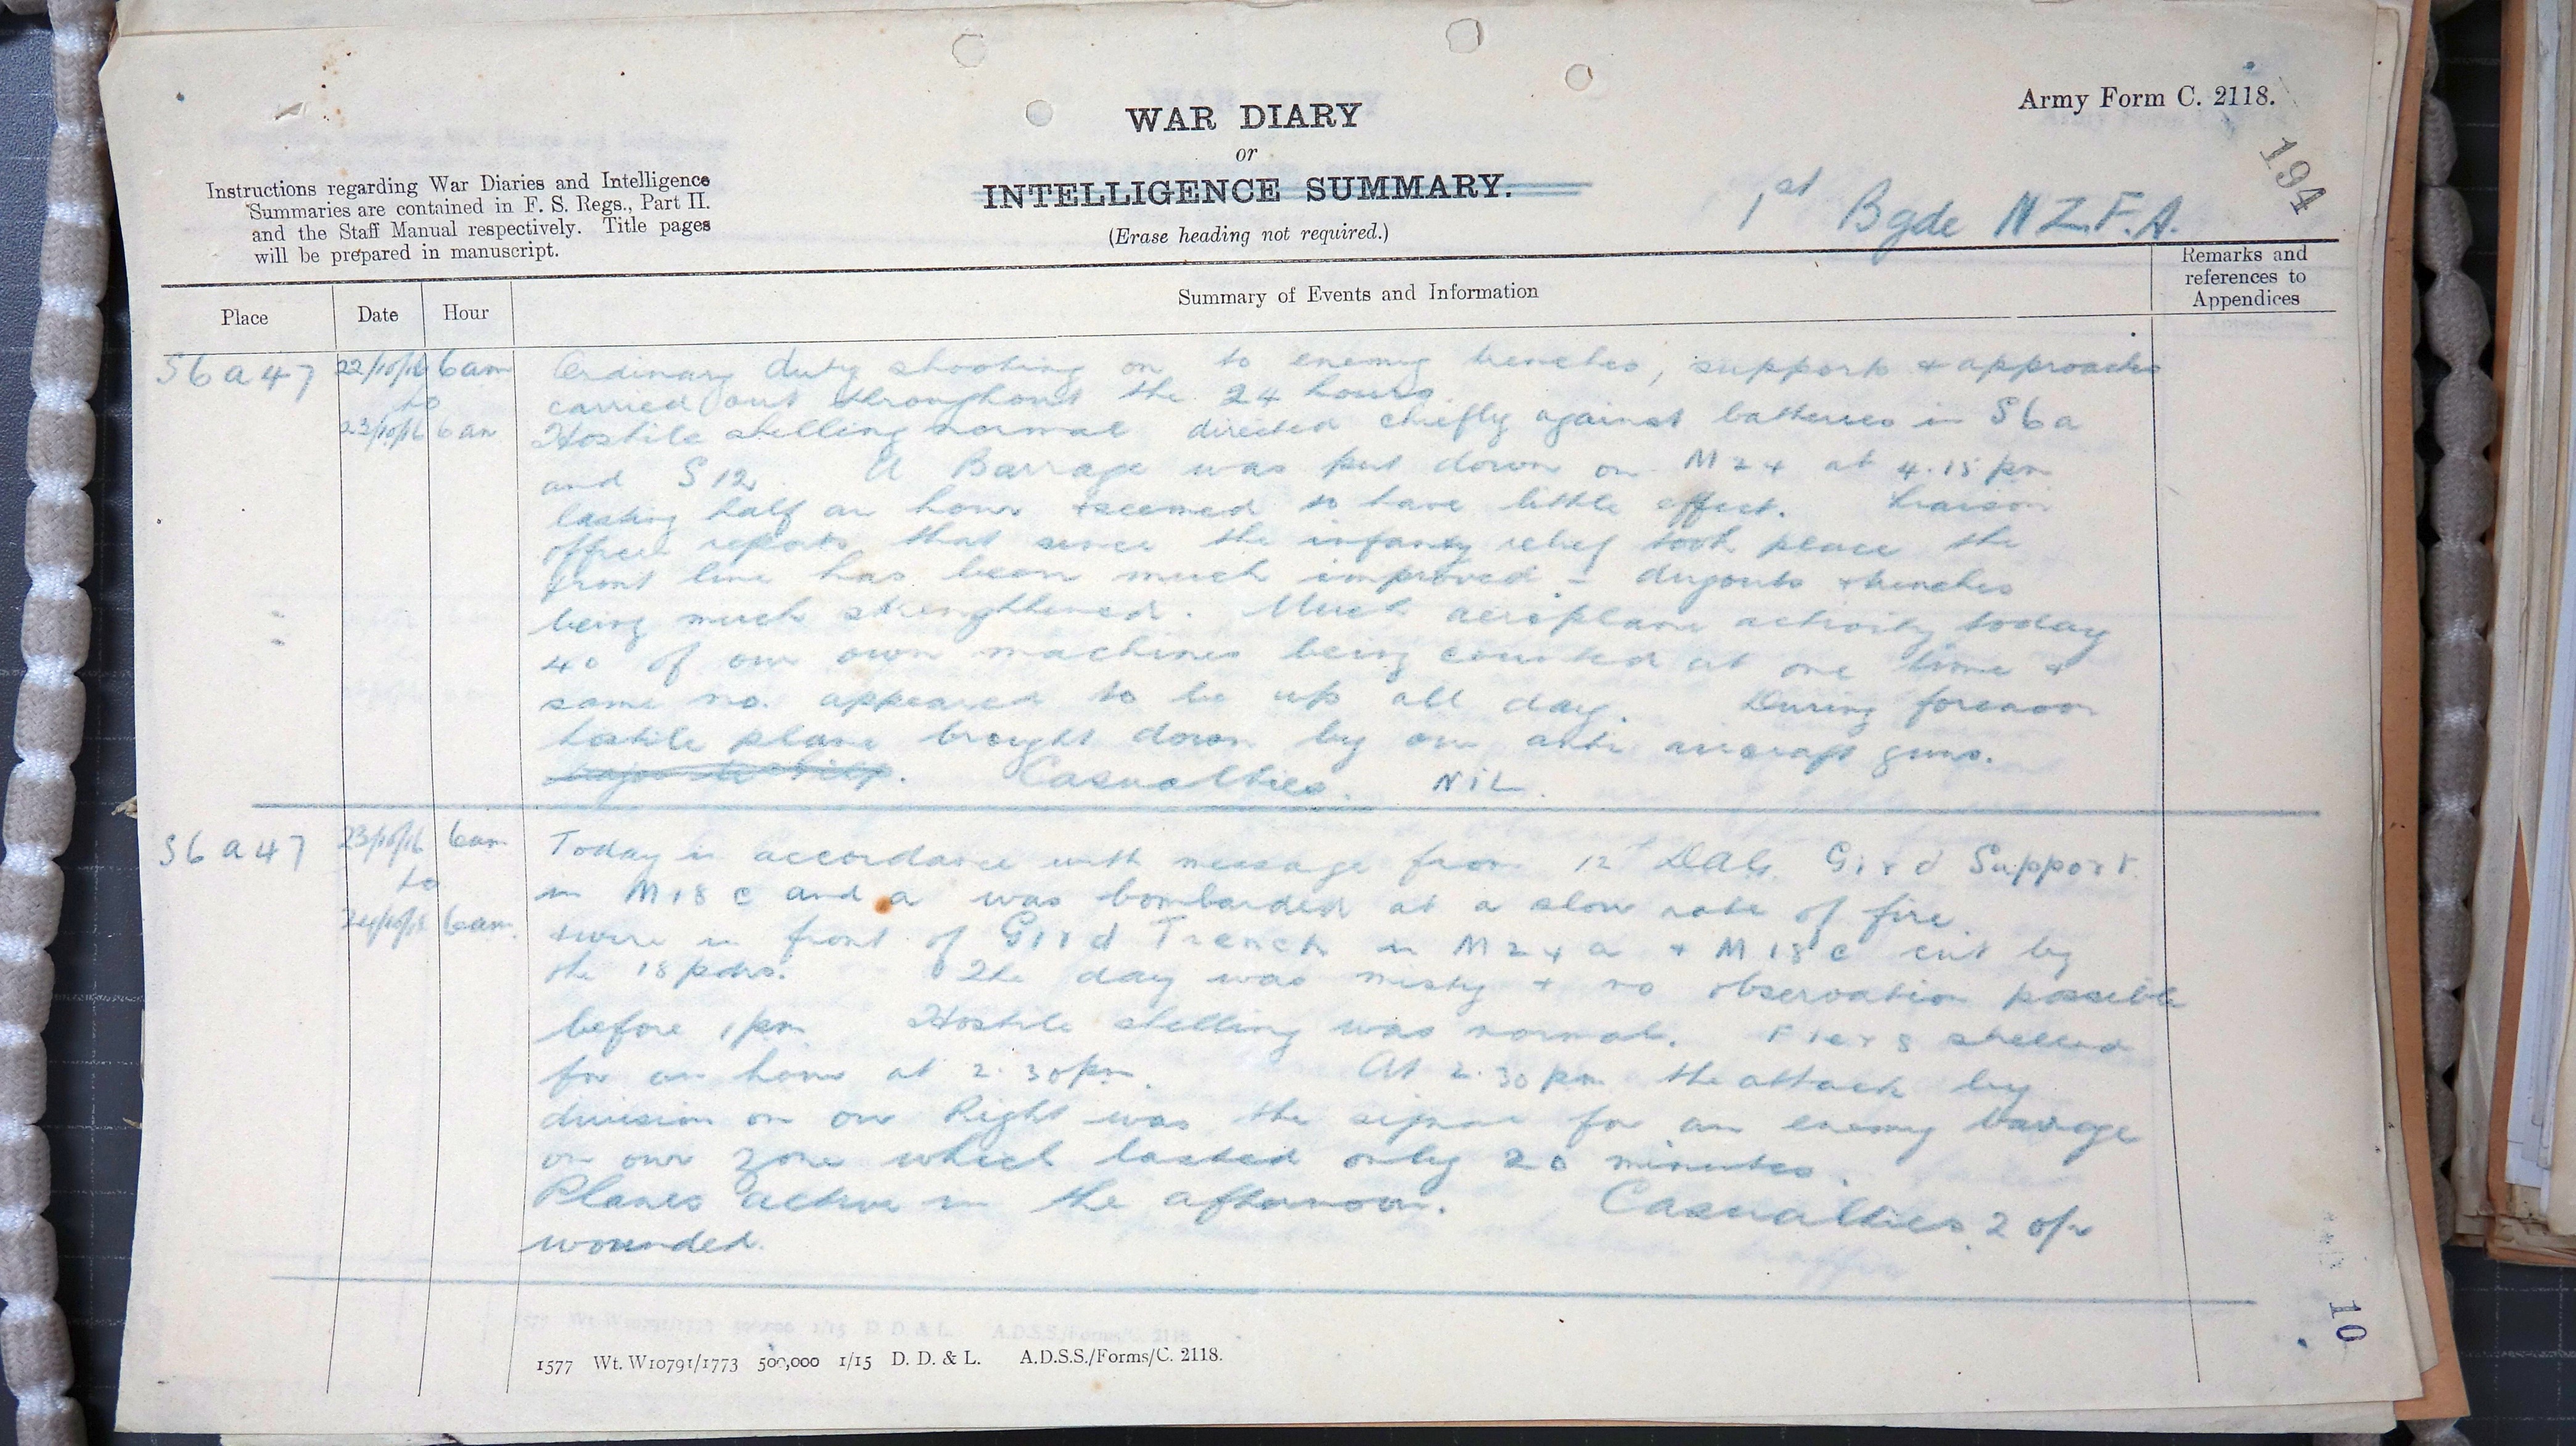 Army Form C. 2118.
194
WAR DIARY
or
INTELLIGENCE SUMMARY.
(Erase heading not required.)
Instructions regarding War Diaries and Intelligence
Summaries are contained in F. S. Regs., Part II.
and the Staff Manual respectively. Title pages
will be prepared in manuscript.
1st Bgde N.Z.F.A.
Place Date Hour Summary of Events and Information Remarks and references to Appendices
S6a47 22/10/16 6am Ordinary duty shooting on to enemy trenches, supports + approaches
to carried out throughout the 24 hours.
23/10/16 6am Hostile shelling normal directed chiefly against batteries in S6a
and S12. A Barrage was put down on M24 at 4.15 pm
lasting half an hour + seemed to have little effect. Liaison
officer reports that since the infantry relief took place the
front line has been much improved - dugouts + trenches
being much strengthened. Much aeroplane activity today
40 of our own machines being counted at one time +
same no. appeared to be up all day. During forenoon
hostile plane brought down by our anti aircraft guns.
Casualties. NIL.
S6a47 23/10/16 6am Today in accordance with message from 12th DAG Gird Support
to in M18c and a was bombarded at a slow rate of fire
24/10/16 6am. + wire in front of Gird Trench in M24a + M18c cut by
the 18 pdrs. The day was misty + no observation possible
before 1pm Hostile shelling was normal. Flers shelled
for an hour at 2.30pm. At 2.30 pm the attack by
division on our Right was the signal for an enemy barrage
on our zone which lasted only 20 minutes.
Planes active in the afternoon. Casualties. 2 o/r
wounded.
1577 Wt. W10791/1773 500,000 1/15 D. D. & L. A.D.S.S./Forms/C. 2118.
10